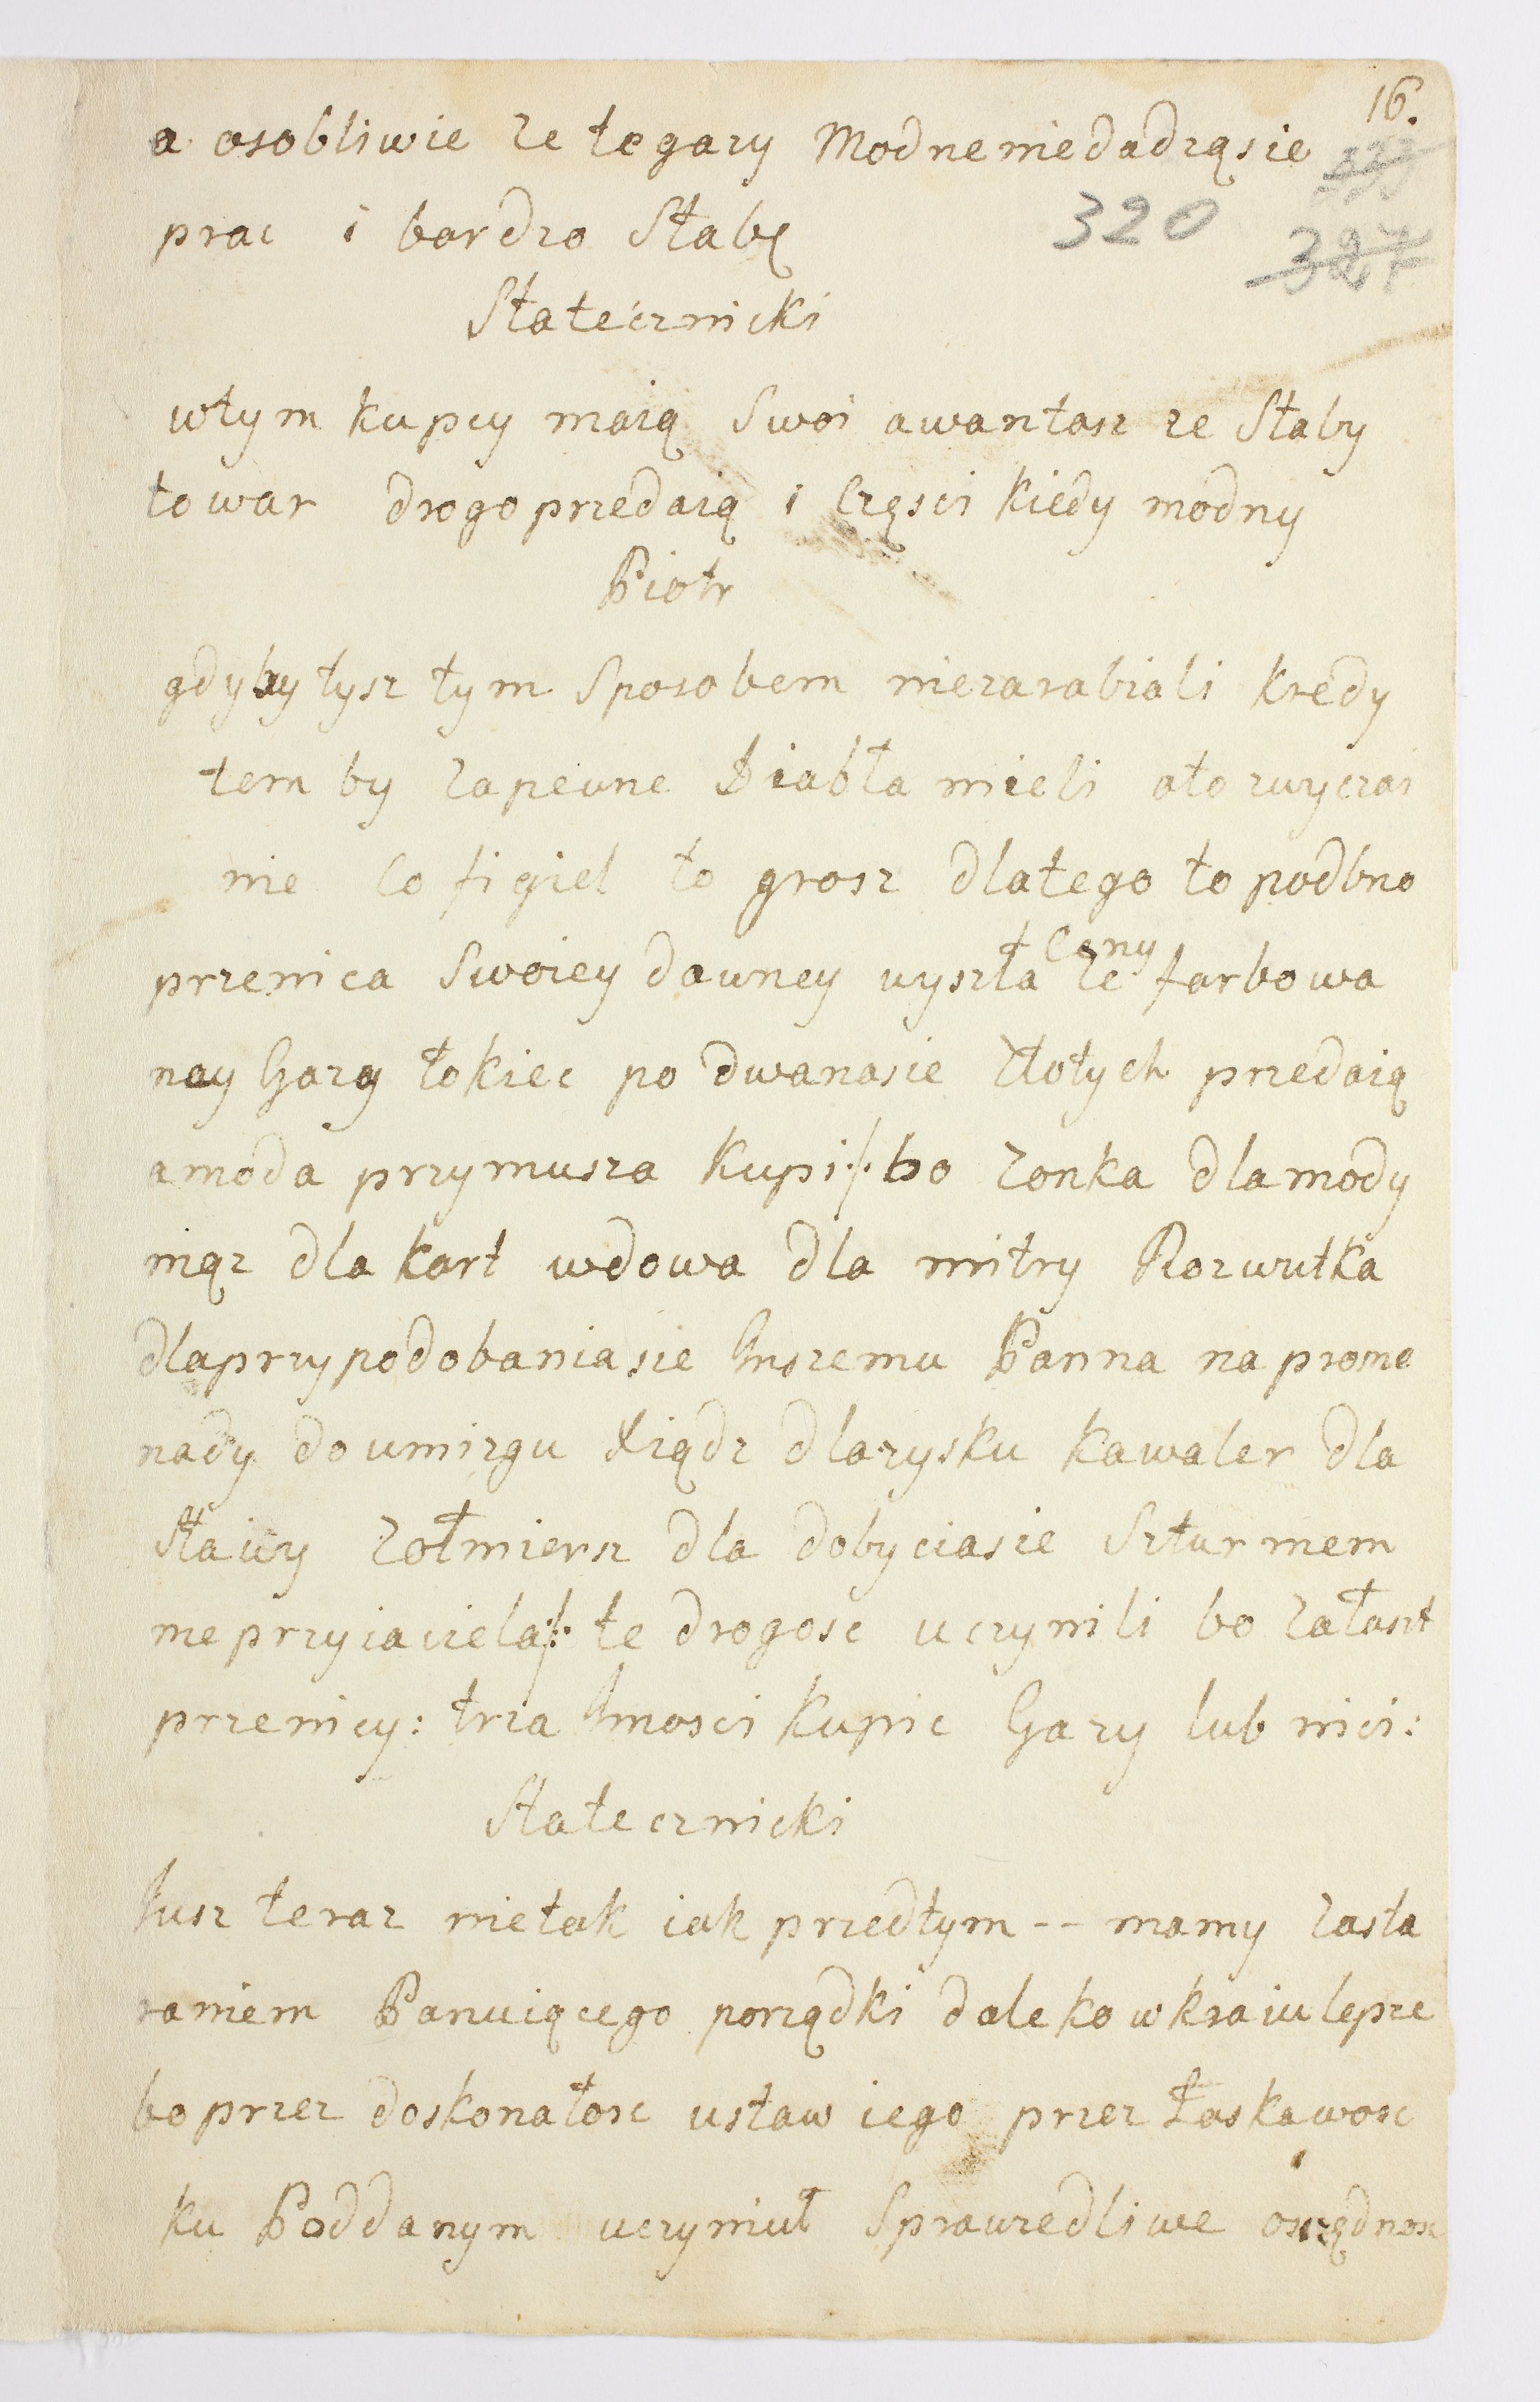 16.
a osobliwie ze te gazy Modne niedadząsie
333
prac i bardzo Słabę
320
327
Statecznicki
wtym kupcy maią Swoi awantasz ze Słaby
towar drogo przedaią i Częsci kiedy modny
Piotr
gdyby tysz tym Sposobem niezarabiali kredy
tem by zapewne Diabła mieli ato zwyczai
nie Co figiel to grosz dlatego to podbno
Ceny
przenica Swoiey dawney wyszła ze farbowa
ney Gazy łokiec po dwanasie Złotych przedaią
amoda przymusza kupi /: bo Zonka dla mody
mąz dla kart wdowa dla mitry Rozwutka
dlaprzypodobaniasie Inszemu Panna na prome
nady do umizgu Xiądz dlazysku kawaler dla
Sławy Zołmiersz dla dobyciasie Szturmem
nieprzyiaciela :/ te drogosc uczynili bo załaszt
przenicy: trza Imosci kupic Gazy lub nici:
Statecznicki
Iusz teraz nietak iak przedtym -- mamy Zasta
raniem Panuiącego porządki daleko wkraiu lepsze
bo przez doskonałosc ustaw iego przez Łaskawosc
ku Poddanym uczyniuł Sprawiedliwe oszządnosc